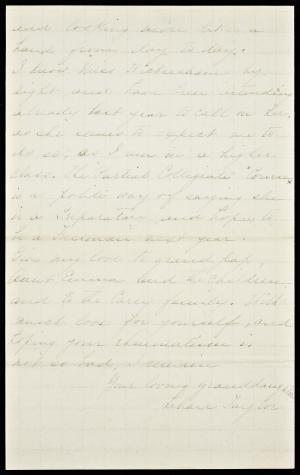 and looking more like a
hand grows day to day.
I know Miss Richardson by
sight and have been intending
already last year to call on her,
as she seems to expect me to
do so, as I am in a higher
class. The Partial Collegiate Course
is a polite way of saying she
is a Preparatory, and hopes to
be a Freshman next year.
Give my love to grand pap,
aunt Emma and the children,
and to the Carey family. With
much love for yourself, and
hoping your rheumatism is
not so bad, I remain
Your loving granddaughter
Taylor